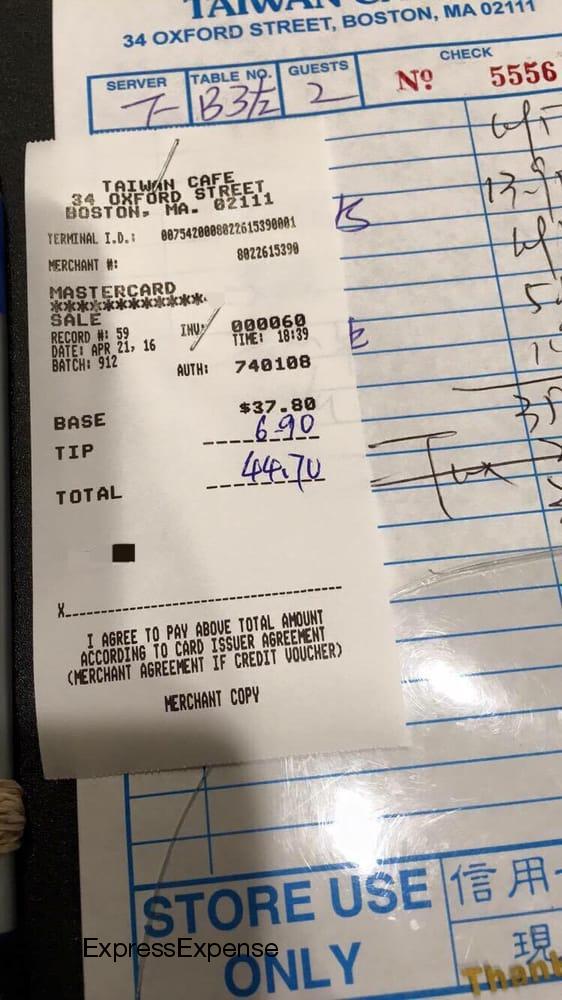 TAIWAN
34 OXFORD STREET, BOSTON, MA 02111
SERVER TABLE NO. GUESTS CHECK
T B3½ 2 Nº 5556
TAIWAN CAFE
34 OXFORD STREET
BOSTON, MA. 02111
TERMINAL I.D.: 0075420008022615390001
MERCHANT #: 8022615390
MASTERCARD
************
SALE
RECORD #: 59 INV: 000060
DATE: APR 21, 16 TIME: 18:39
BATCH: 912 AUTH: 740108
BASE $37.80
TIP 6.90
TOTAL 44.70
Tax
X
I AGREE TO PAY ABOVE TOTAL AMOUNT
ACCORDING TO CARD ISSUER AGREEMENT
(MERCHANT AGREEMENT IF CREDIT VOUCHER)
MERCHANT COPY
STORE USE
ONLY
信用
現
Thank
ExpressExpense